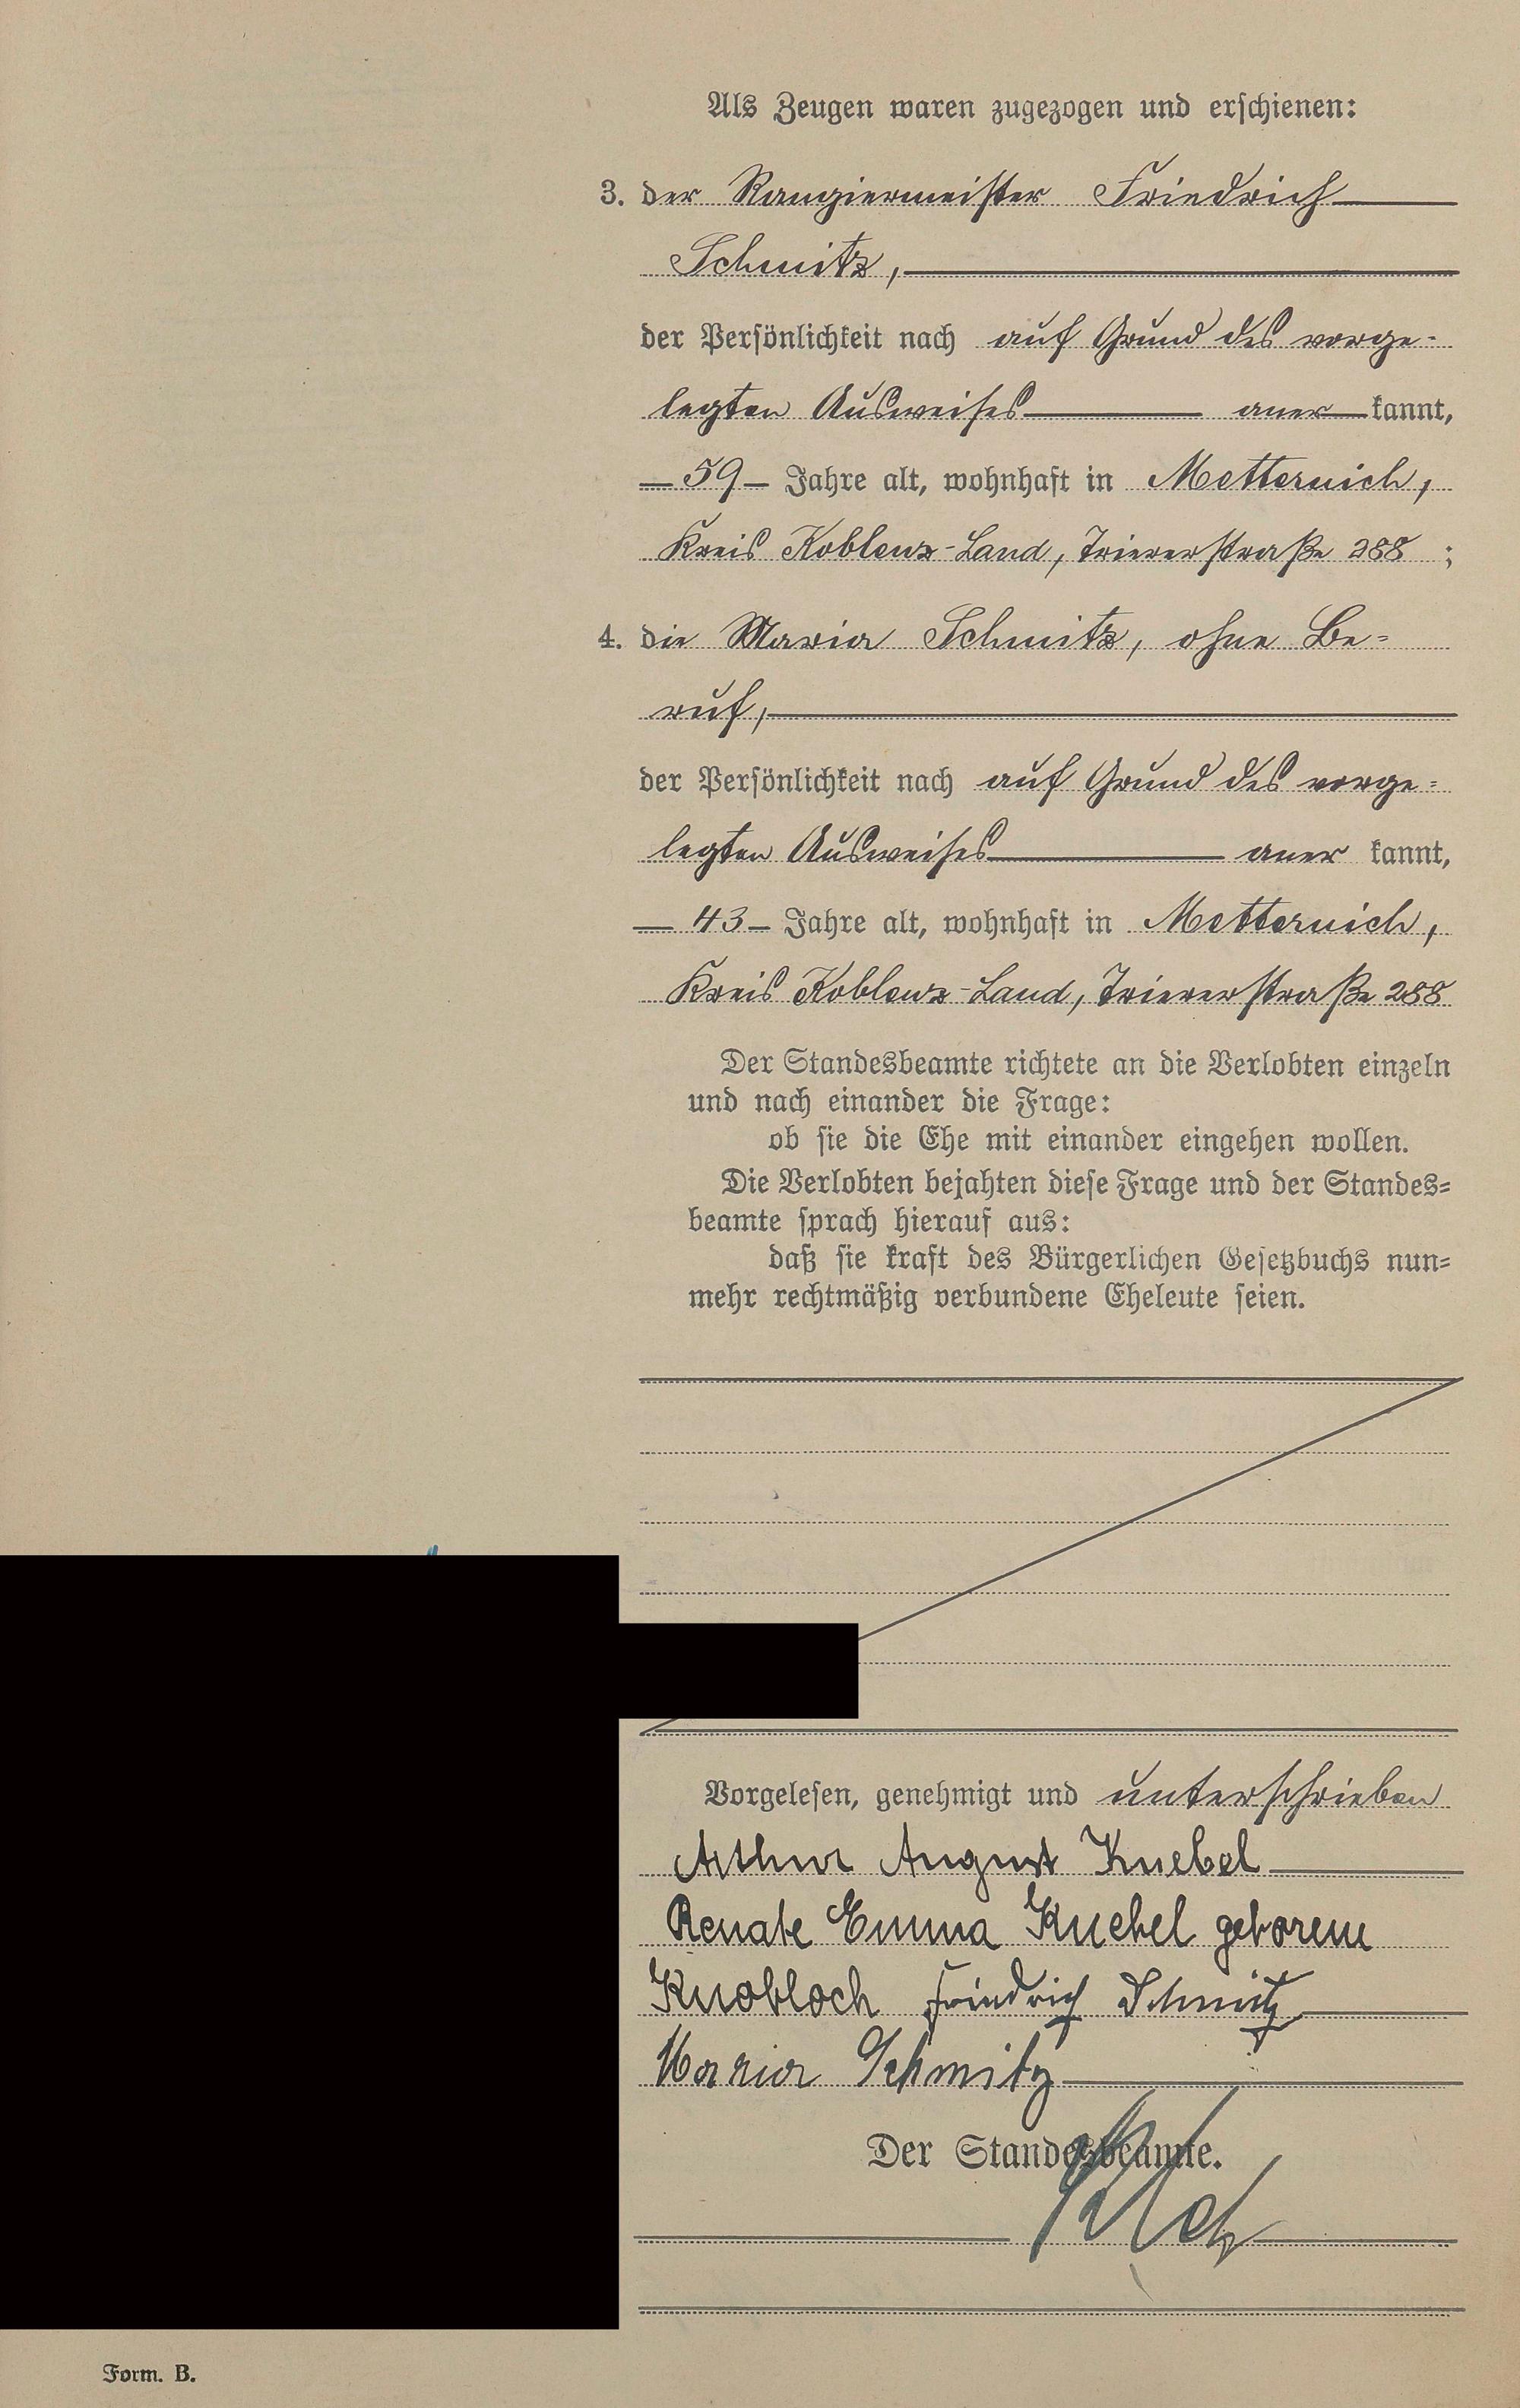 Als Zeugen waren zugezogen und erschienen:
3. der Rangiermeister Friedrich
Schmitz,
der Persönlichkeit nach auf Grund des vorge-
legten Ausweises aner kannt,
59 Jahre alt, wohnhaft in Metternich,
Kreis Koblenz-Land, Triererstraße 288 ;
4. die Maria Schmitz, ohne Be-
ruf,
der Persönlichkeit nach auf Grund des vorge-
legten Ausweises aner kannt,
43 Jahre alt, wohnhaft in Metternich,
Kreis Koblenz-Land, Triererstraße 288
Der Standesbeamte richtete an die Verlobten einzeln
und nach einander die Frage:
ob sie die Ehe mit einander eingehen wollen.
Die Verlobten bejahten diese Frage und der Standes-
beamte sprach hierauf aus:
daß sie kraft des Bürgerlichen Gesetzbuchs nun-
mehr rechtmäßig verbundene Eheleute seien.
Vorgelesen, genehmigt und unterschrieben
Arthur August Knebel
Renate Emma Knebel geborene
Knobloch Friedrich Schmitz
Maria Schmitz
Der Standesbeamte.
Form. B.